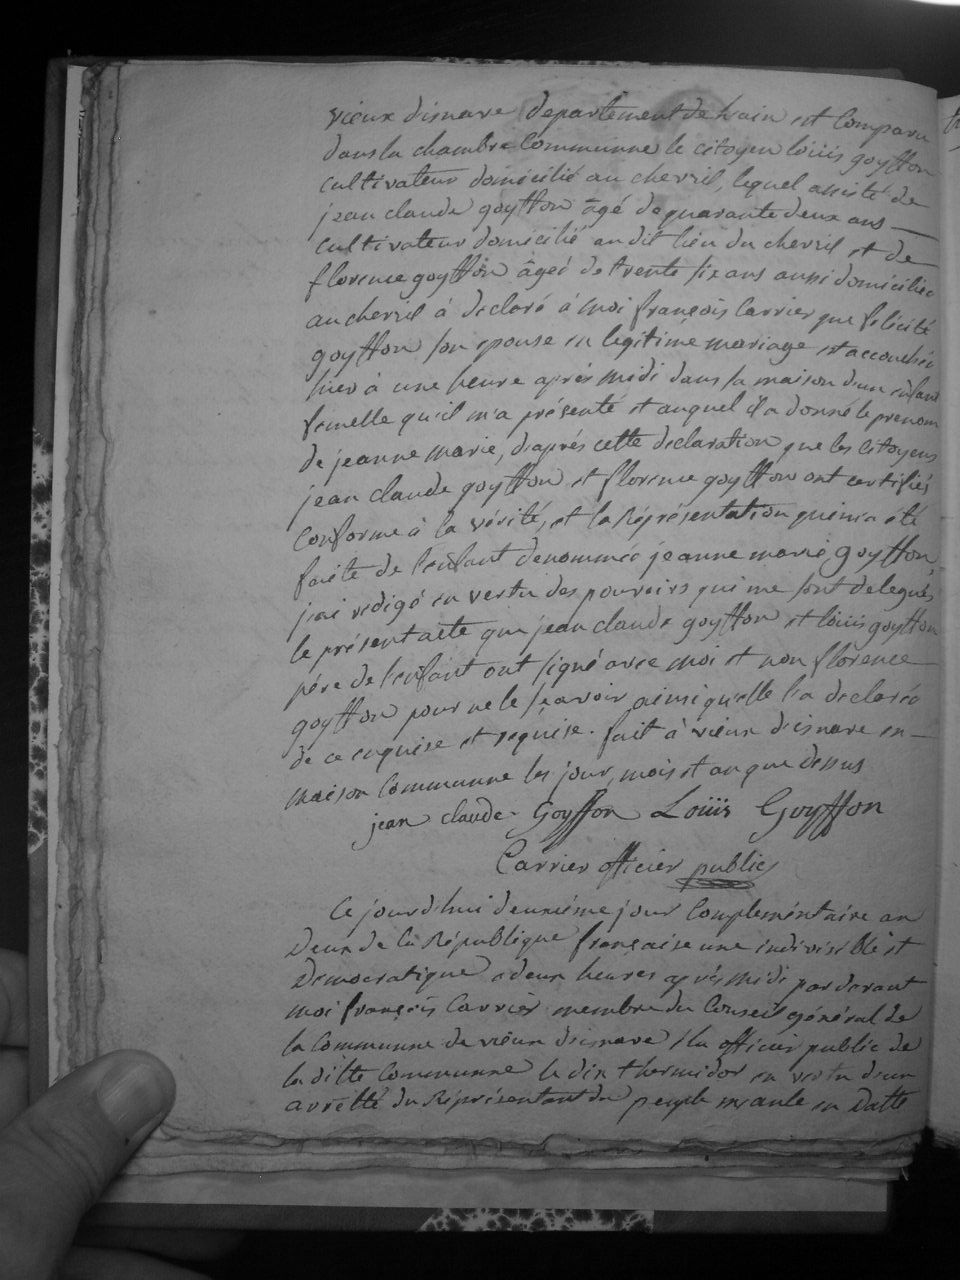 vieux disnave département de l'ain est comparu
dans la chambre Communne le citoyen louis goyffon
cultivateur domicilié au chevril, lequel assisté de
jean claude goyffon âgé de quarante deux ans
cultivateur domicilié au dit lieu du chevril et de
florence goyffon âgeé de trente six ans aussi domiciliée
au chevril à declaré à moi françois Carrier que felicité
goyffon son epouse en legitime mariage est accouchée
hier à une heure après midi dans sa maison d'un enfant
femelle qu'il m'a présenté et auquel il a donné le prenom
de jeanne marie, d'aprés cette declaration que les citoyens
jean claude goyffon et florence goyffon ont certifiés
conforme à la vérité, et la Réprésentation qui m'a été
faite de l'enfant denommée jeanne marie goyffon,
j'ai redigé en vertu des pouvoirs qui me sont delegués
le présent acte que jean claude goyffon et louis goyffon
pére de l'enfant ont signé avec moi et non florence
goyffon pour ne le sçavoir ainsi qu'elle l'a declarée
de ce enquise et requise. fait à vieux d'isnave en
maison Communne les jour, mois et an que dessus
jean claude Goyffon Loüis Goyffon
Carrier officier public
Ce jourd'hui deuxiéme jour Complémentaire an
Deux de la République française une indivisible et
Democratique a deux heures aprés midi par devant
moi françois Carrier membre du Conseil général de
la Communne de vieux disnave élu officier public de
la ditte Communne le dix thermidor en vertu d'un
arrêtté du Réprésentant du peuple meaulle en datte